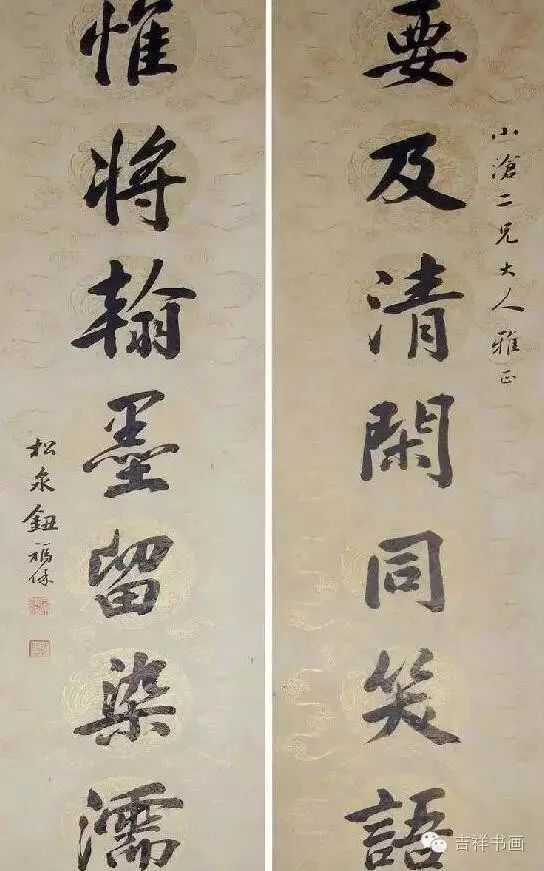 小滄二兄大人雅正
要及清閑同笑語
惟将翰墨留染濡
松泉鈕福保
吉祥书画